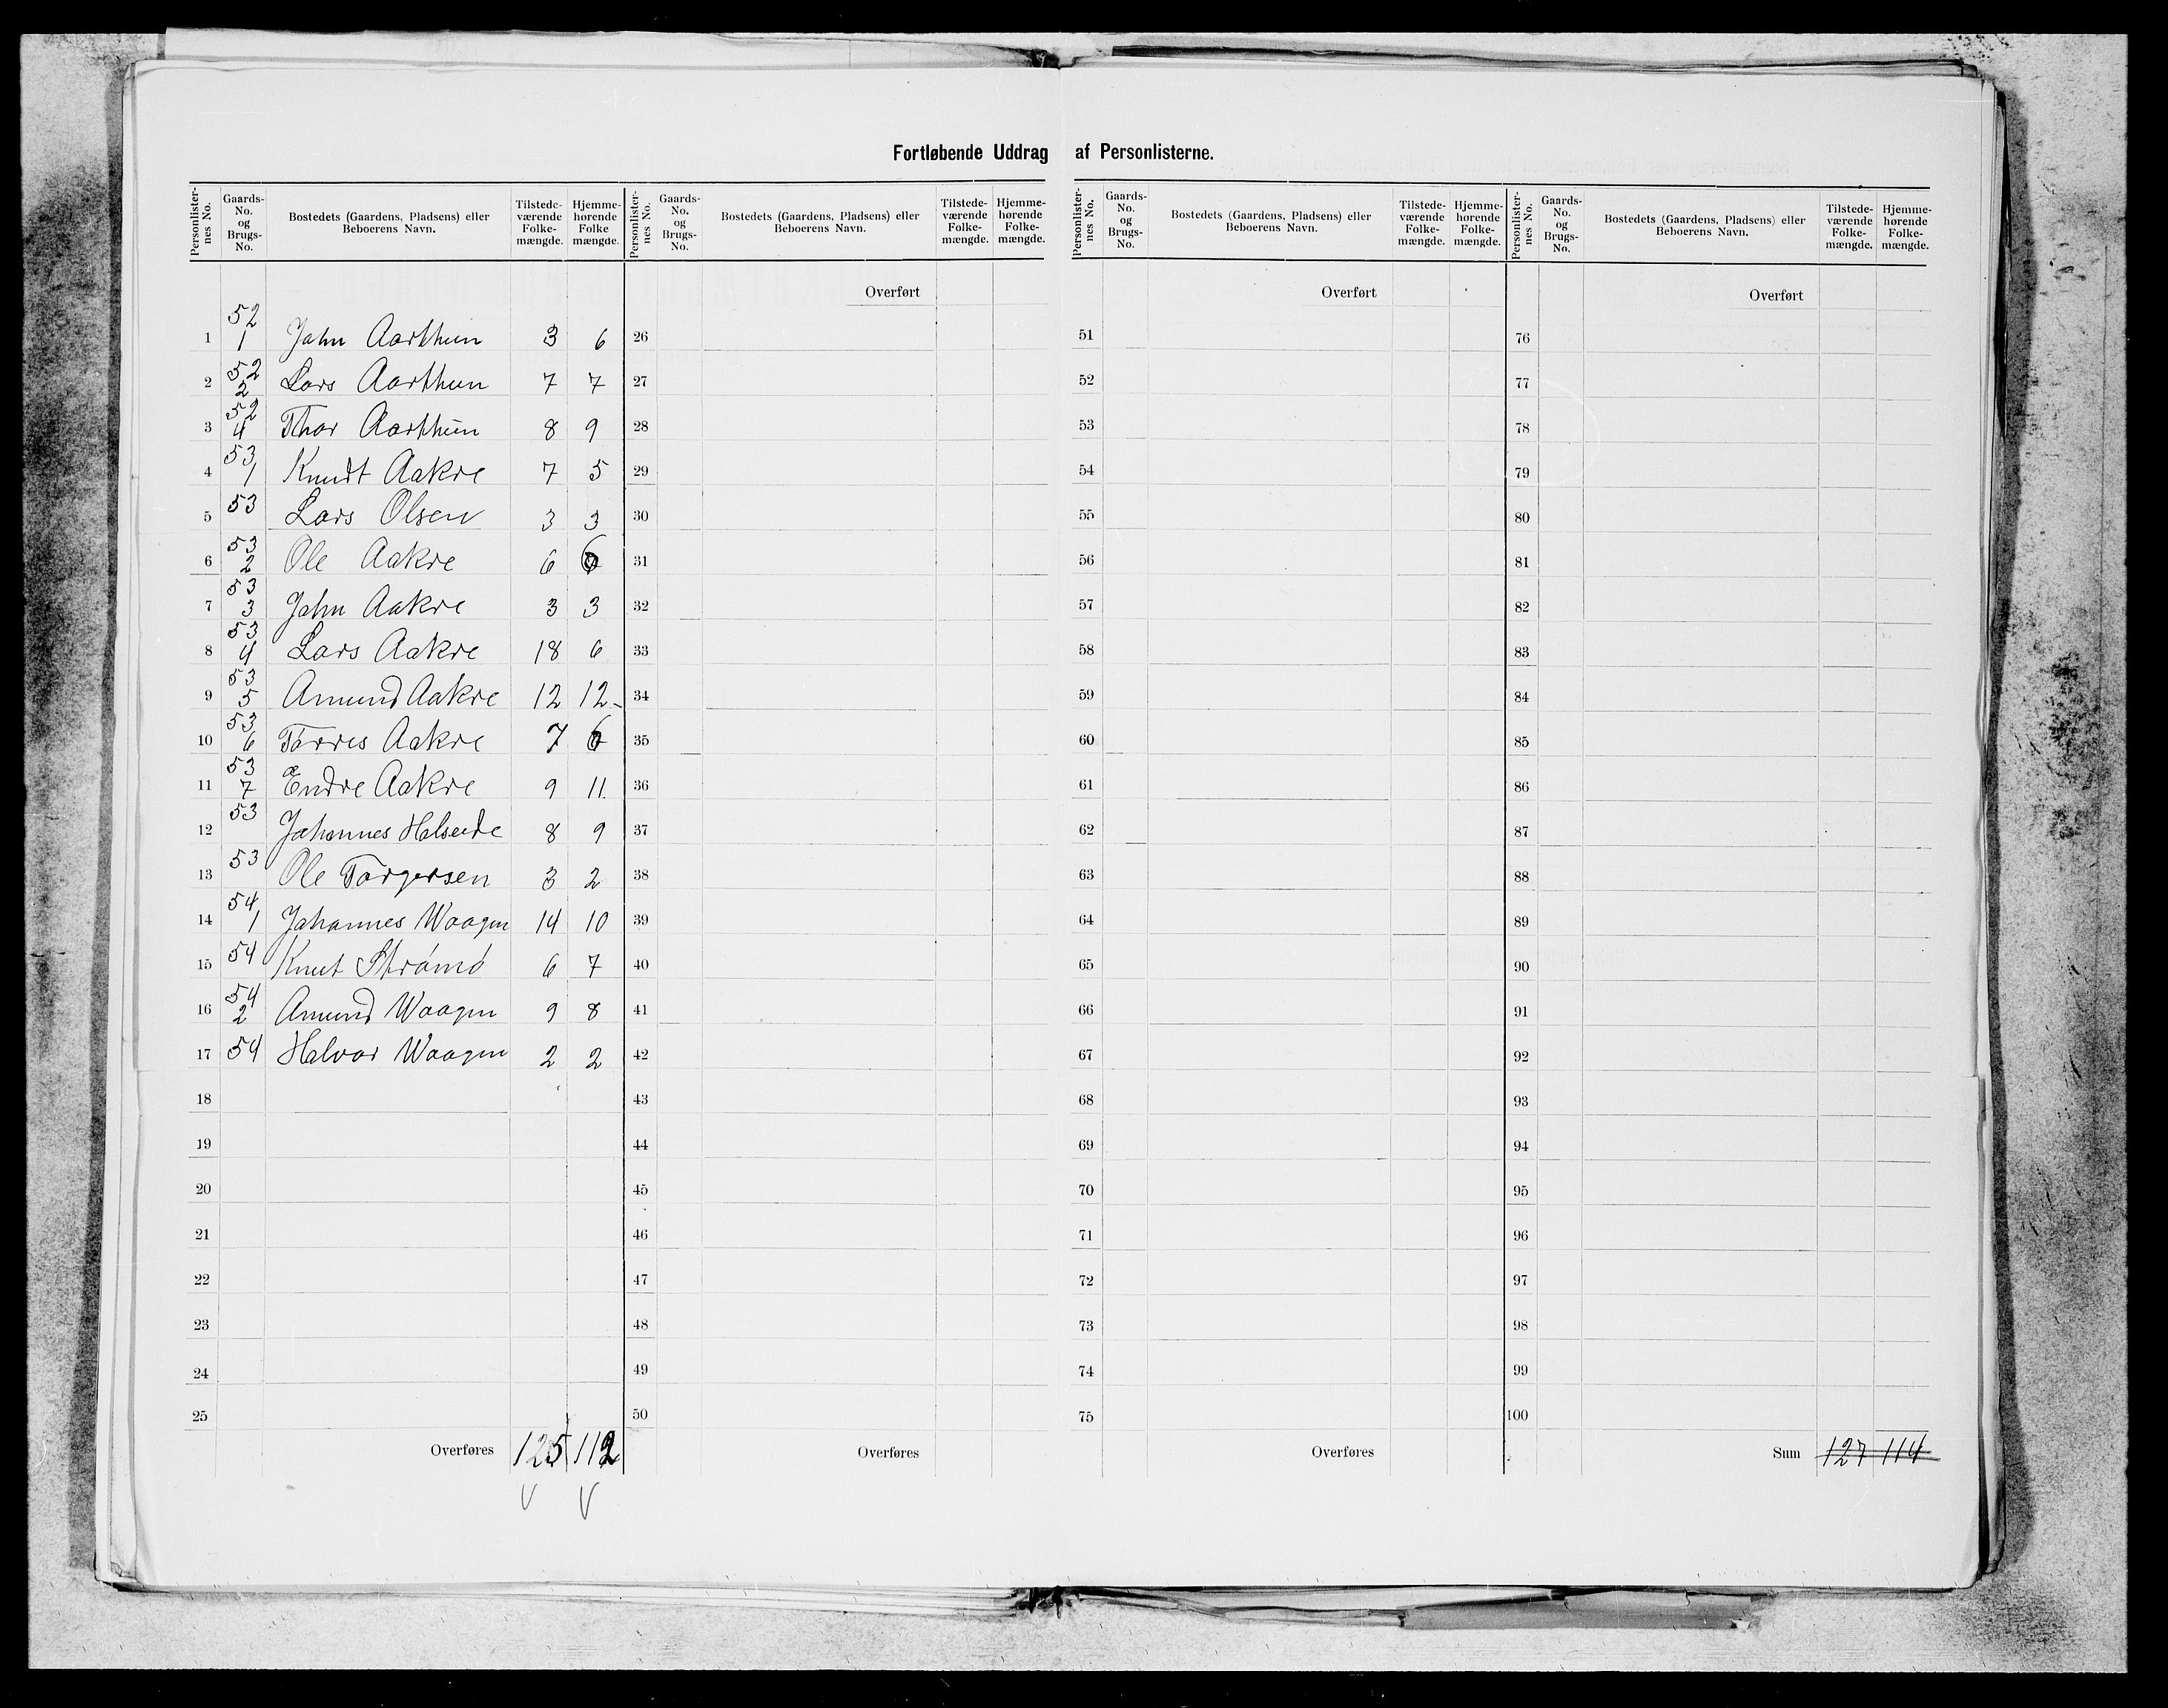 Fortløbende Uddrag af Personlisterne.
Personlister-nes No. Gaards-No. og Brugs-No. Bostedets (Gaardens, Pladsens) eller Beboerens Navn. Tilstede-værende Folke-mængde. Hjemme-hørende Folke mængde.
Personlister-nes No. Gaards-No. og Brugs-No. Bostedets (Gaardens, Pladsens) eller Beboerens Navn. Tilstede-værende Folke-mængde. Hjemme-hørende Folke-mængde.
Personlister-nes No. Gaards-No. og Brugs-No. Bostedets (Gaardens, Pladsens) eller Beboerens Navn. Tilstede-værende Folke-mængde. Hjemme-hørende Folke-mængde.
Personlister-nes No. Gaards-No. og Brugs-No. Bostedets (Gaardens, Pladsens) eller Beboerens Navn. Tilstede-værende Folke-mængde. Hjemme-hørende Folke-mængde.
Overført Overført Overført
1 52 1 John Aarthun 3 6 26 51 76
2 52 2 Lars Aarthun 7 7 27 52 77
3 52 4 Thor Aarthun 8 9 28 53 78
4 53 1 Knudt Aakre 7 5 29 54 79
5 53 Lars Olsen 3 3 30 55 80
6 53 2 Ole Aakre 6 6 31 56 81
7 53 3 John Aakre 3 3 32 57 82
8 53 4 Lars Aakre 18 6 33 58 83
9 53 5 Amund Aakre 12 12 34 59 84
10 53 6 Torres Aakre 7 6 35 60 85
11 53 7 Endre Aakre 9 11 36 61 86
12 53 Johannes Halseide 8 9 37 62 87
13 53 Ole Torgersen 3 2 38 63 88
14 54 1 Johannes Waagen 14 10 39 64 89
15 54 Knut Strømø 6 7 40 65 90
16 54 2 Amund Waagen 9 8 41 66 91
17 54 Halvor Waagen 2 2 42 67 92
18 43 68 93
19 44 69 94
20 45 70 95
21 46 71 96
22 47 72 97
23 48 73 98
24 49 74 99
25 50 75 100
Overføres 125 112 Overføres Overføres Sum 127 114